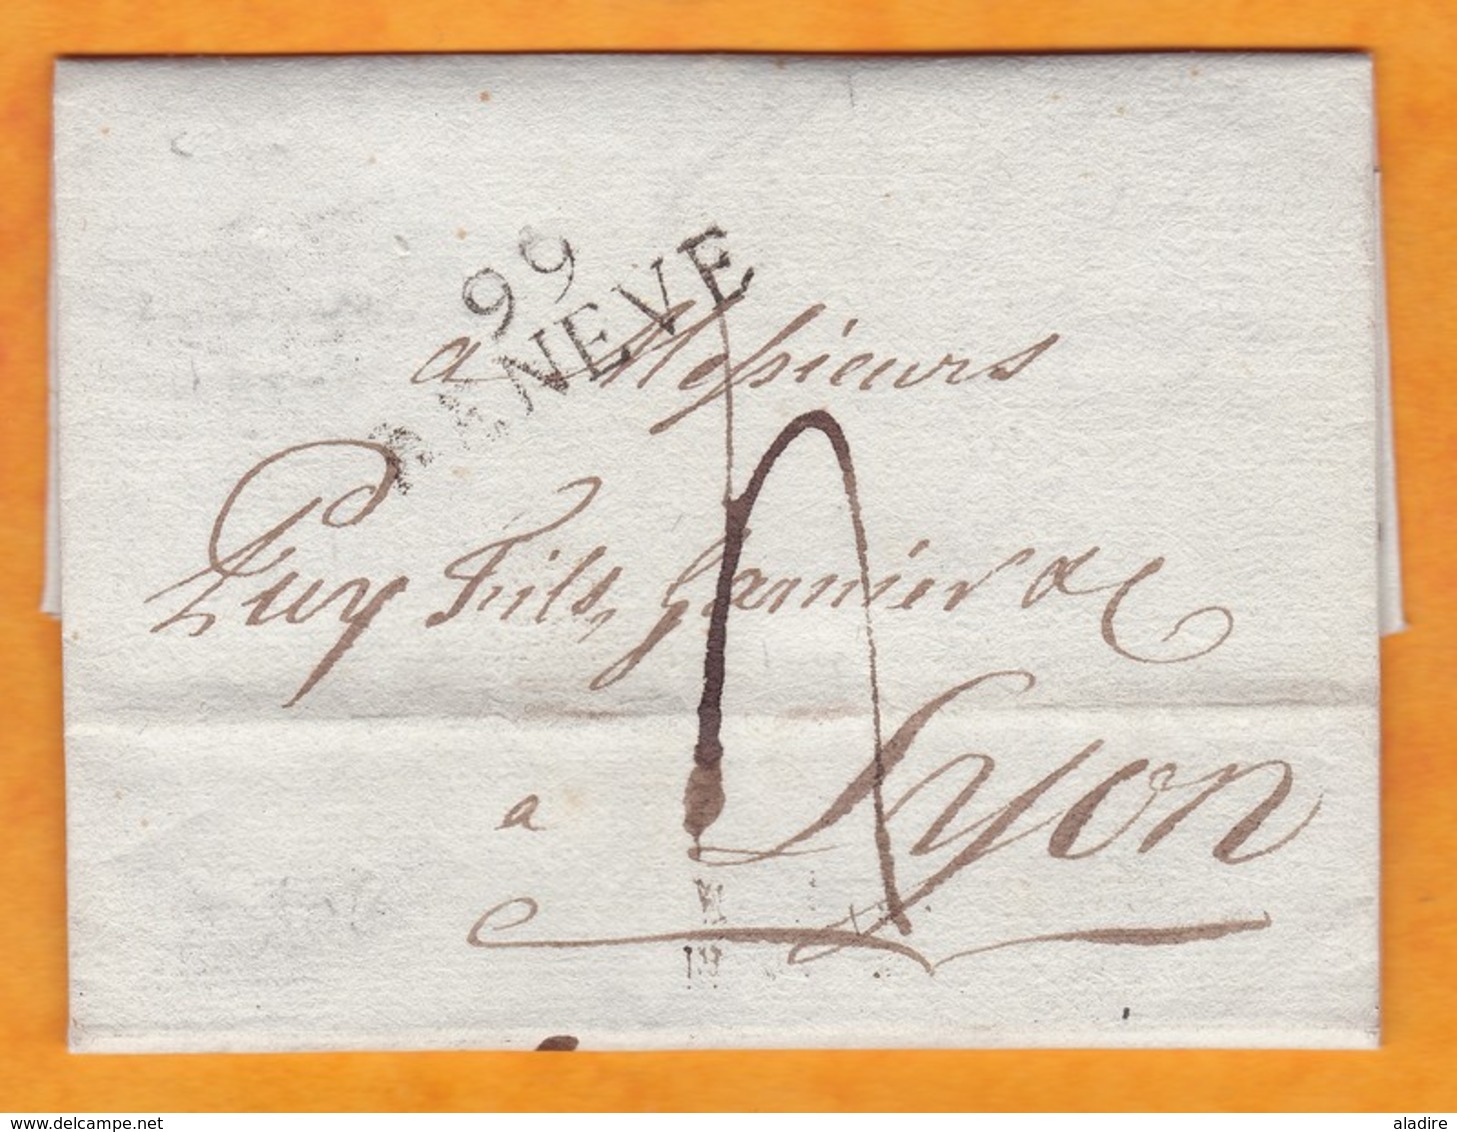 99
GENEVE
a Messieurs
Puy Fils, Garnier & C
a Lyon
www.delcampe.net
aladire